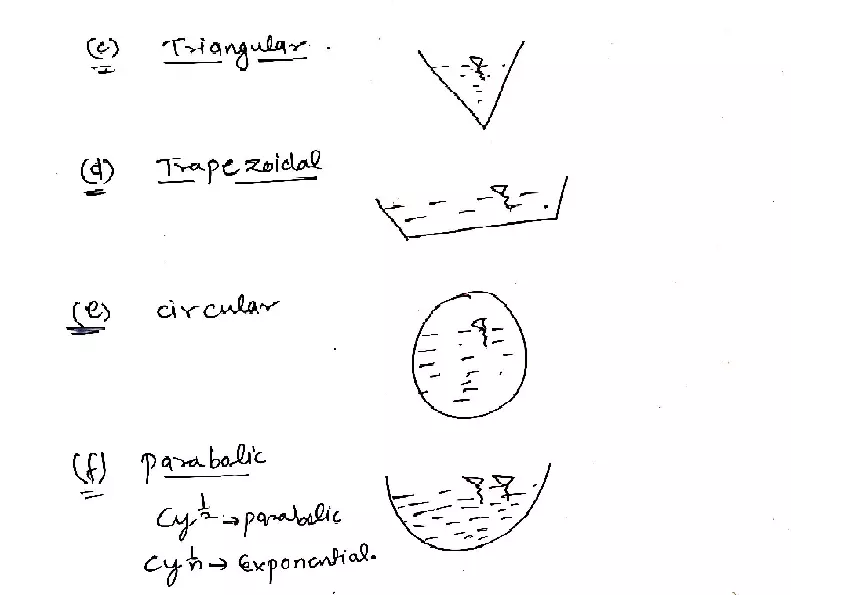 (c) Triangular.
(d) Trapezoidal
(e) circular
(f) parabolic
Cy^1/2 → parabolic
Cy^1/n → Exponential.